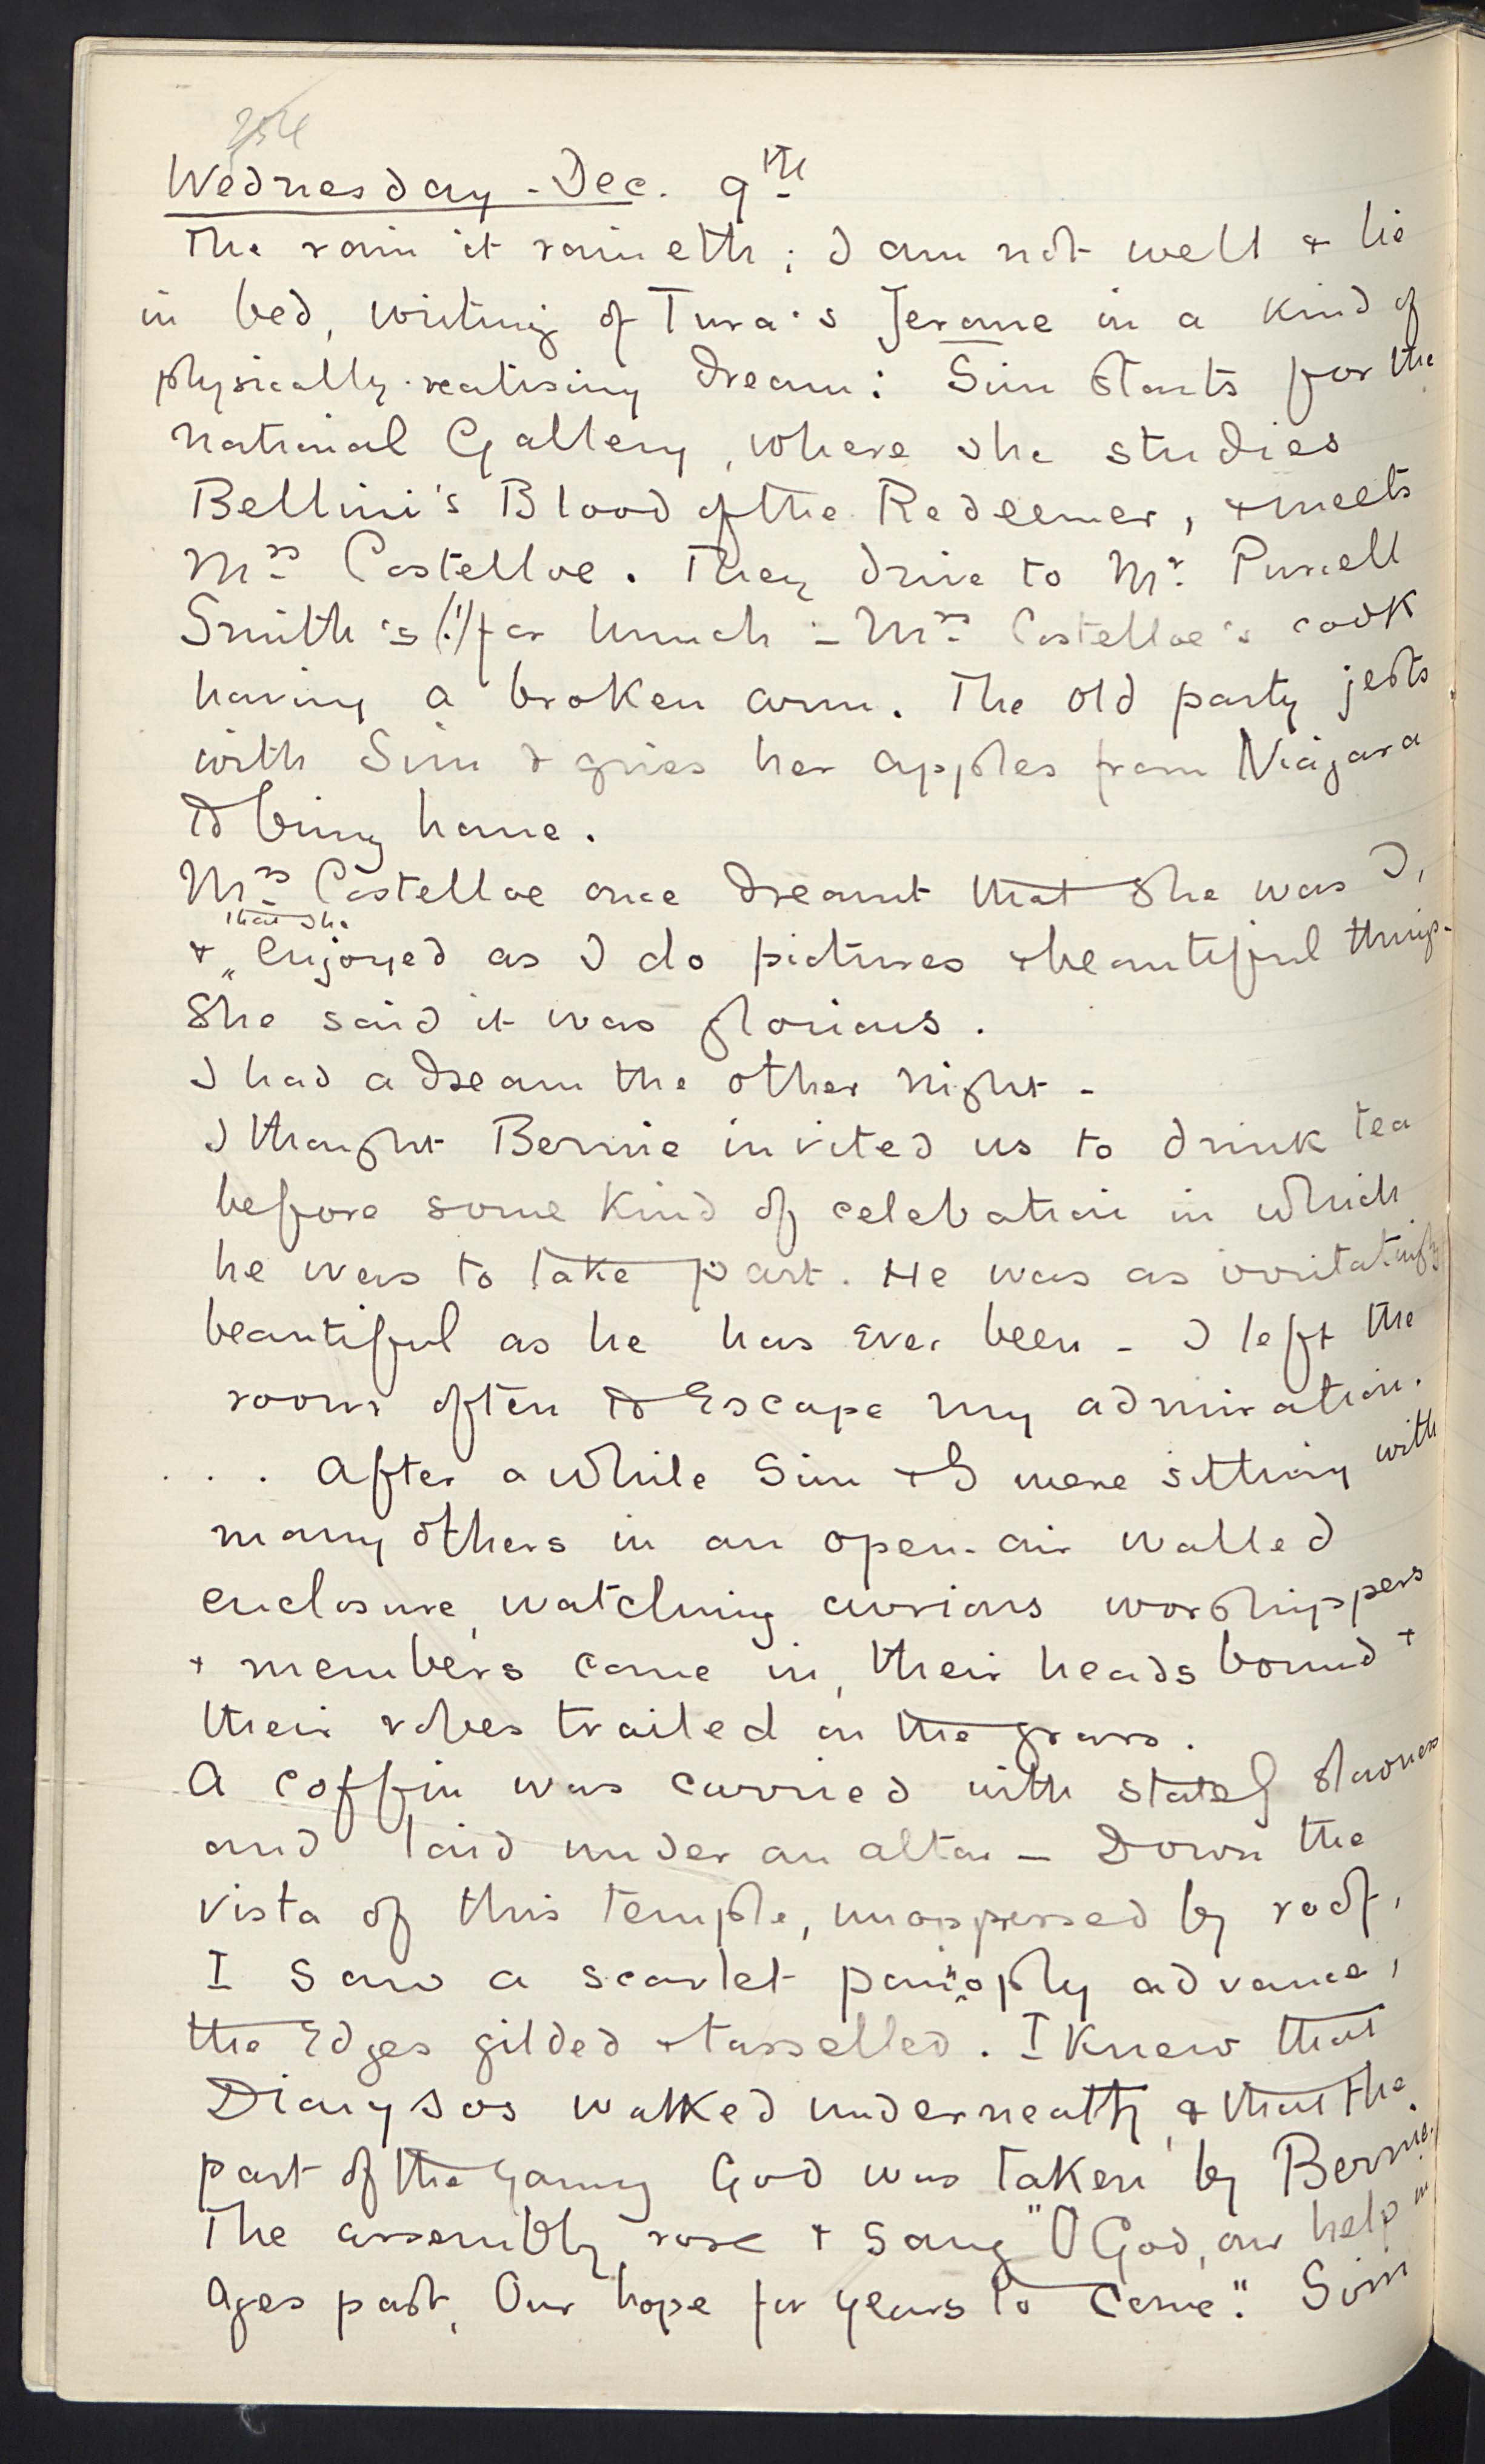 254
Wednesday - Dec. 9th
The rain it raineth; I am not well & lie
in bed, writing of Tura's Jerome in a kind of
physically-realising dream: Sim starts for the
National Gallery, where she studies
Bellini's Blood of the Redeemer, & meets
Mrs Costelloe. They drive to Mr. Pearsall
Smith's (!) for lunch - Mrs Costelloe's cook
having a broken arm. The old party jests
with Sim & gives her apples from Niagara
to bring home.
Mrs Costelloe once dreamt that she was I,
that she
& enjoyed as I do pictures & beautiful things.
She said it was glorious.
I had a dream the other night -
I thought Bernie invited us to drink tea
before some kind of celebation in which
he was to take part. He was as irritatingly
beautiful as he has ever been - I left the
room often to escape my admiration.
... After a while Sim & I were sitting with
many others in an open-air walled
enclosure, watching curious worshippers
& members come in, their heads bound &
their robes trailed on the grass.
A coffin was carried with stately slowness
and laid under an altar - Down the
vista of this temple, unoppressed by roof,
I saw a scarlet panoply advance,
the edges gilded & tasselled. I knew that
Dionysos walked underneath, & that the
part of the Young God was taken by Bernie.
The assembly rose & sang "O God, our help in
Ages past, Our hope for years to come". Sim